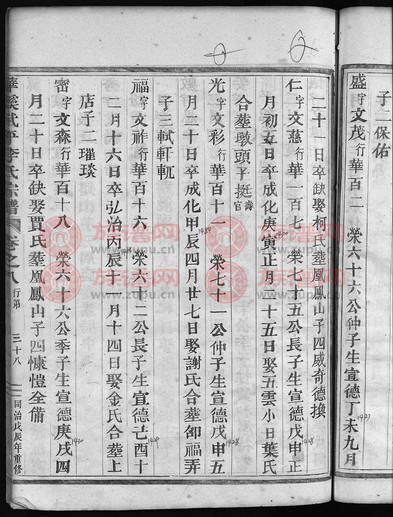 子二保佑
盛字文茂行華百二 榮六十六公仲子生宣德丁未九月
1427
二十一日卒缺娶柯氏葬凰鳳山子四威奇德換
仁字文慈行華一百七 榮七十五公長子生宣德戊申正
1428
月初五日卒成化庚寅正月二十五日娶五雲小日葉氏
合葬墩頭子挺 壽官
光字文彩行華百十一 榮七十一公仲子生宣德戊申五
1428
月二十日卒成化甲辰四月廿七日娶謝氏合葬卸福弄
1484
子三軾軒軏
福字文祚行華百十六 榮六十二公長子生宣德己酉十
1429
二月十六日卒弘治丙辰十一月十四日娶金氏合葬上
店子二璀琰
密字文森行華百十八 榮六十六公季子生宣德庚戌四
1430
月二十日卒缺娶賈氏葬凰鳳山子四慷愷全備
華溪武平李氏宗譜 卷之八 行第 三十八 同治戊辰年重修